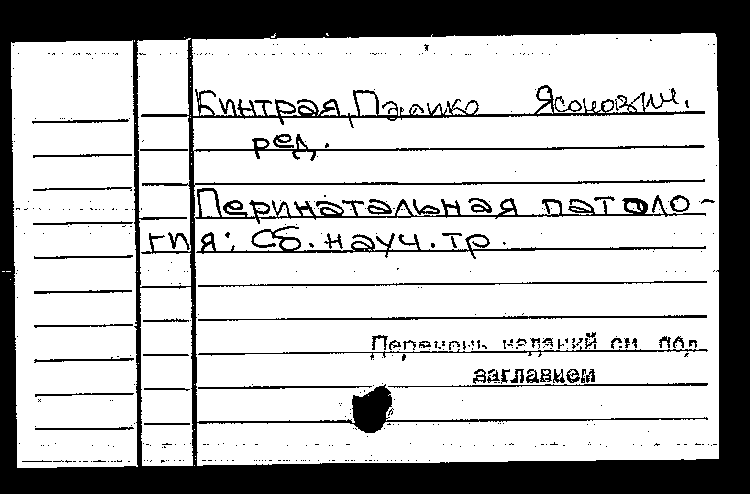 Кинтрая, Паико Ясонович.
ред.
Перинатальная патоло-
гия: Сб. науч. тр.
Перечень изданий см. под
заглавием